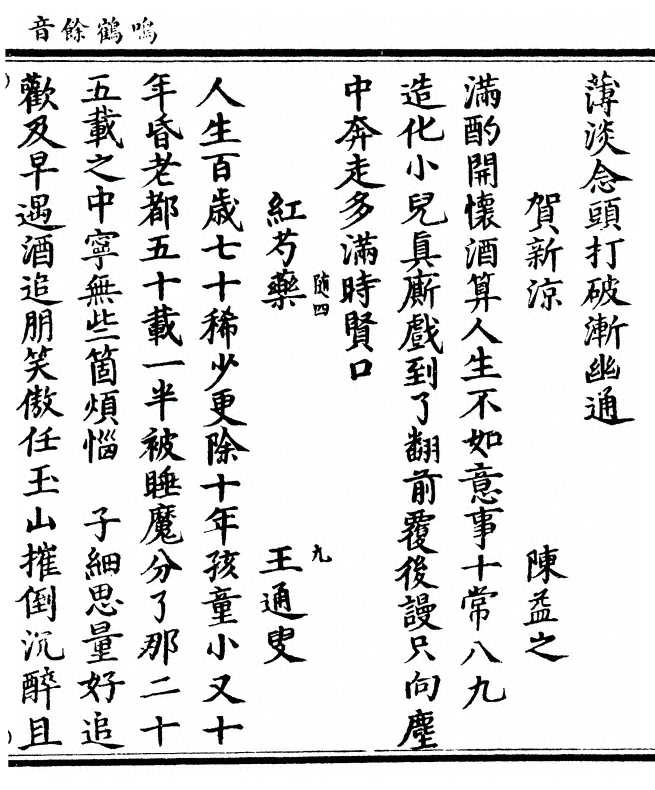 鳴鶴餘音
薄淡念頭打破漸幽通
賀新涼 陳益之
滿酌開懷酒算人生不如意事十常八九
造化小兒眞廝戲到了翻前覆後謾只向塵
中奔走多滿時賢口
紅芍藥 王通叟
隨四 九
人生百歲七十稀少更除十年孩童小又十
年昏老都五十載一半被睡魔分了那二十
五載之中寧無些箇煩惱 子細思量好追
歡及早遇酒追朋笑傲任玉山摧倒沉醉且